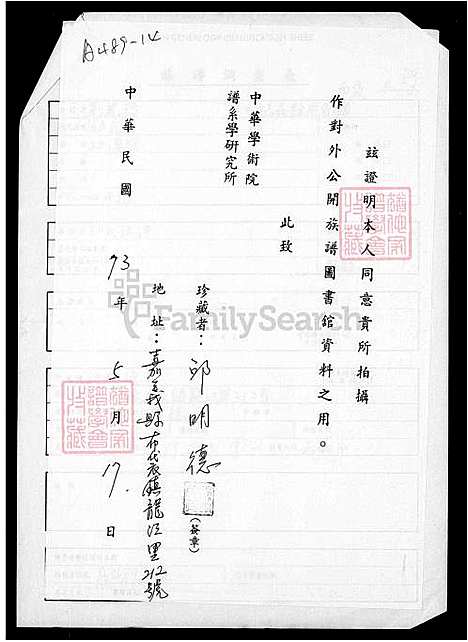 A489-14
茲證明本人同意貴所拍攝
作對外公開族譜圖書館資料之用。
此致
中華學術院
譜系學研究所
珍藏者：邱明德
(簽章)
地址：嘉義縣布袋鎮龍江里212號
中華民國 73年 5月 17日
FamilySearch